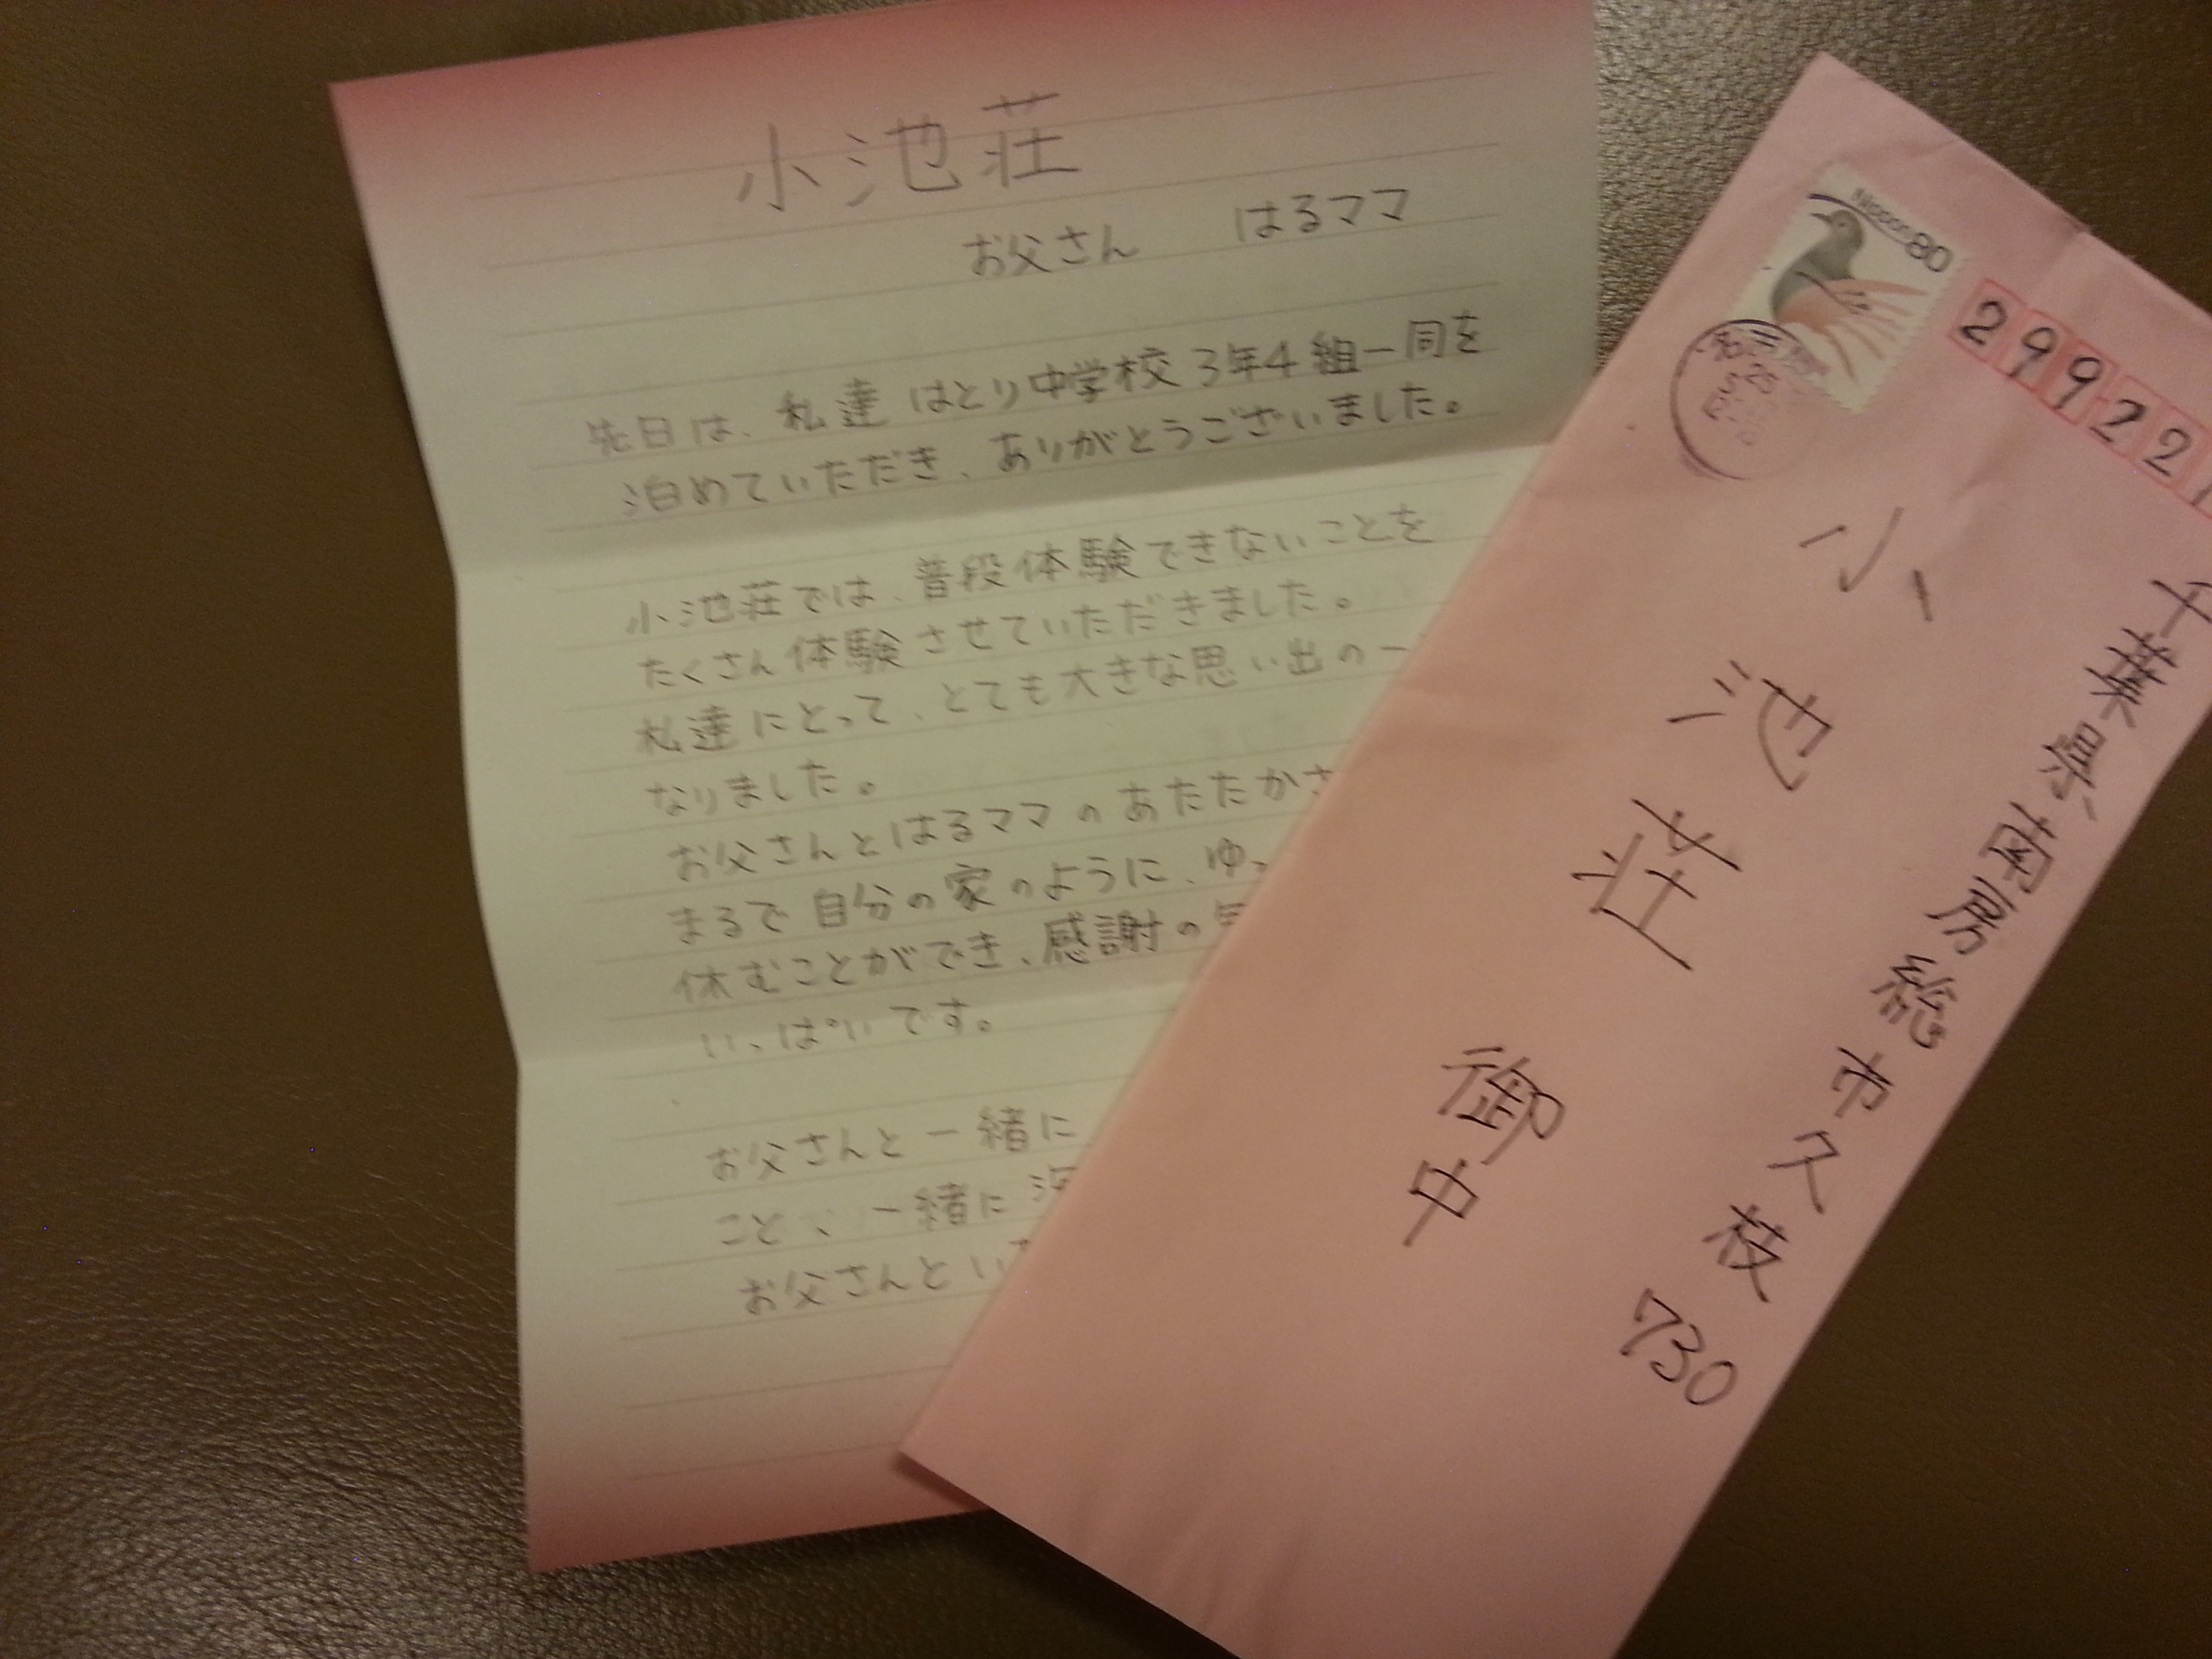 小池荘
お父さん　はるママ
先日は、私達 はとり中学校 3年4組一同を
泊めていただき、ありがとうございました。
小池荘では、普段体験できないことを
たくさん体験させていただきました。
私達にとって、とても大きな思い出の一
なりました。
お父さんとはるママのあたたかさ
まるで自分の家のように、ゆっ
休むことができ、感謝の
いっぱいです。
お父さんと一緒に
こと、一緒に
お父さんとい
NIPPON 80
299221
千葉県南房総市久枝730
小池荘 御中